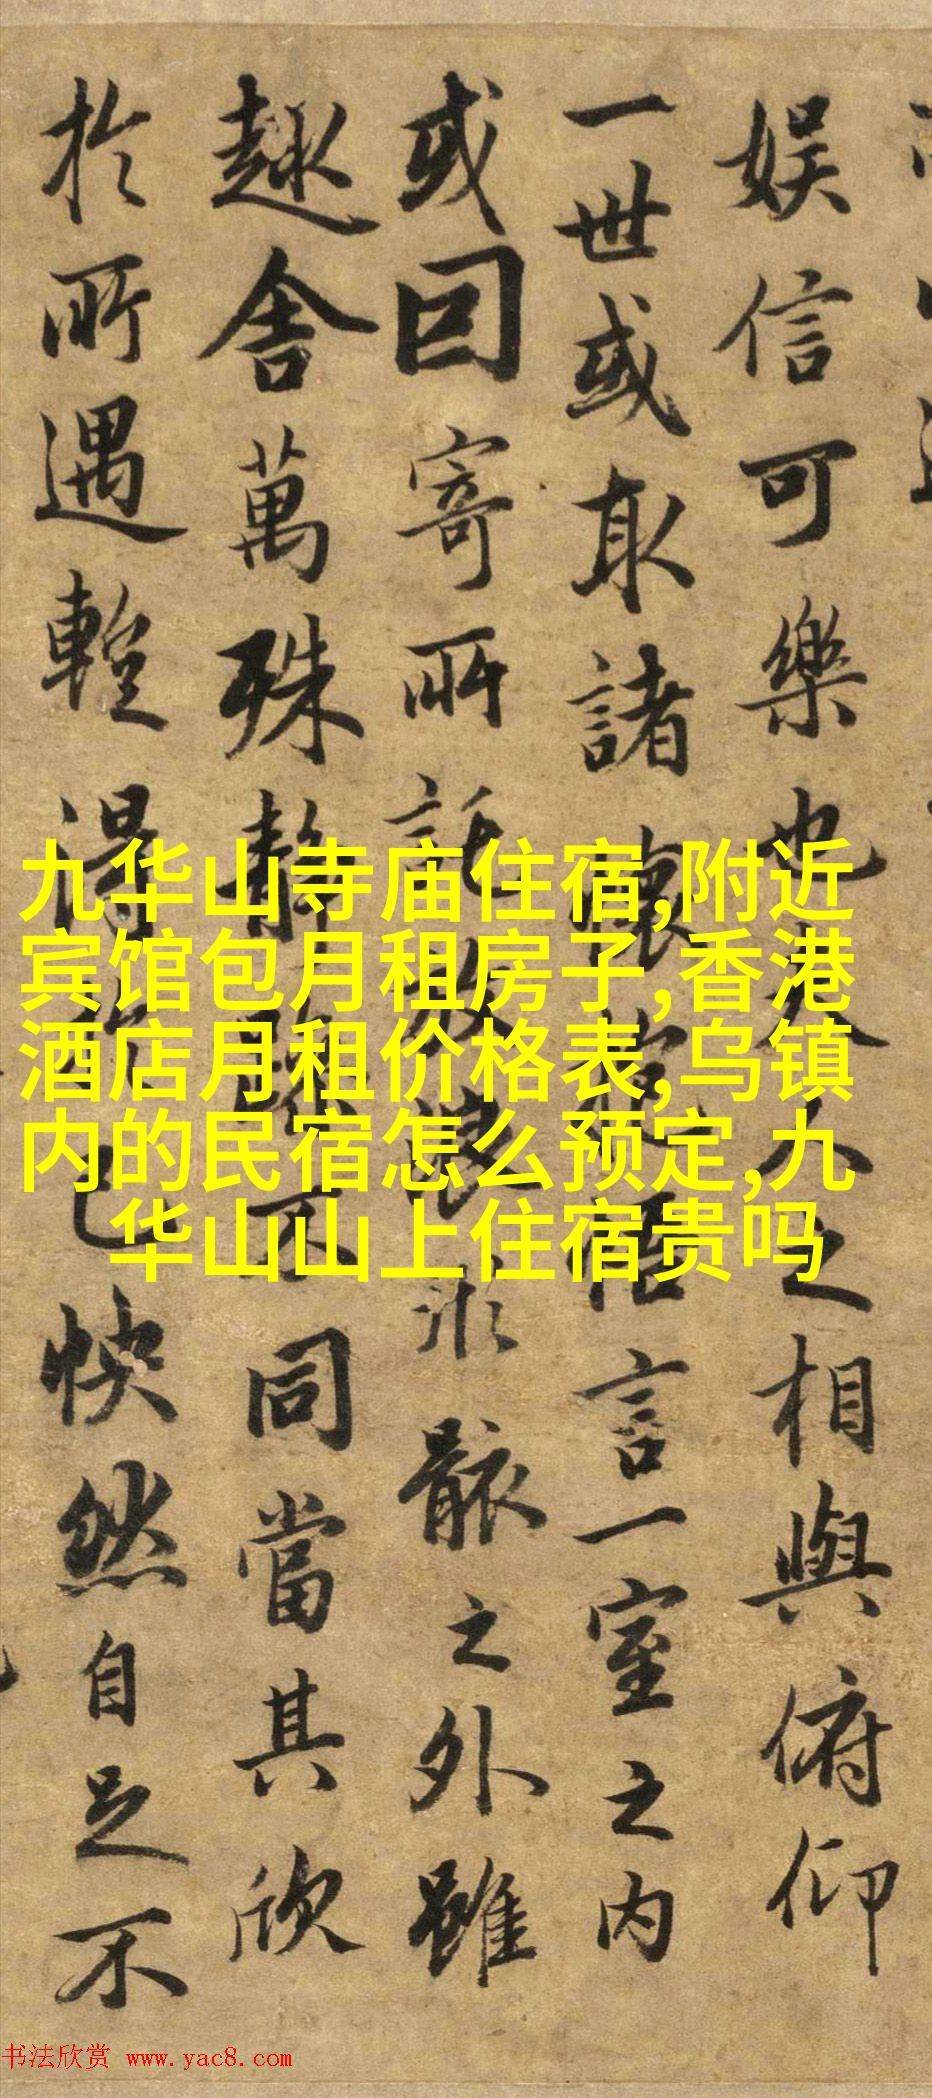 娱信可樂也夫人之相與俯仰
一世或取諸懷抱悟言一室之内
或因寄所託放浪形骸之外雖
趣舍萬殊静躁不同當其欣
於所遇暫得於己快然自足不
九华山寺庙住宿,附近
宾馆包月租房子,香港
酒店月租价格表,乌镇
内的民宿怎么预定,九
华山山上住宿贵吗
书法欣赏 www.yac8.com